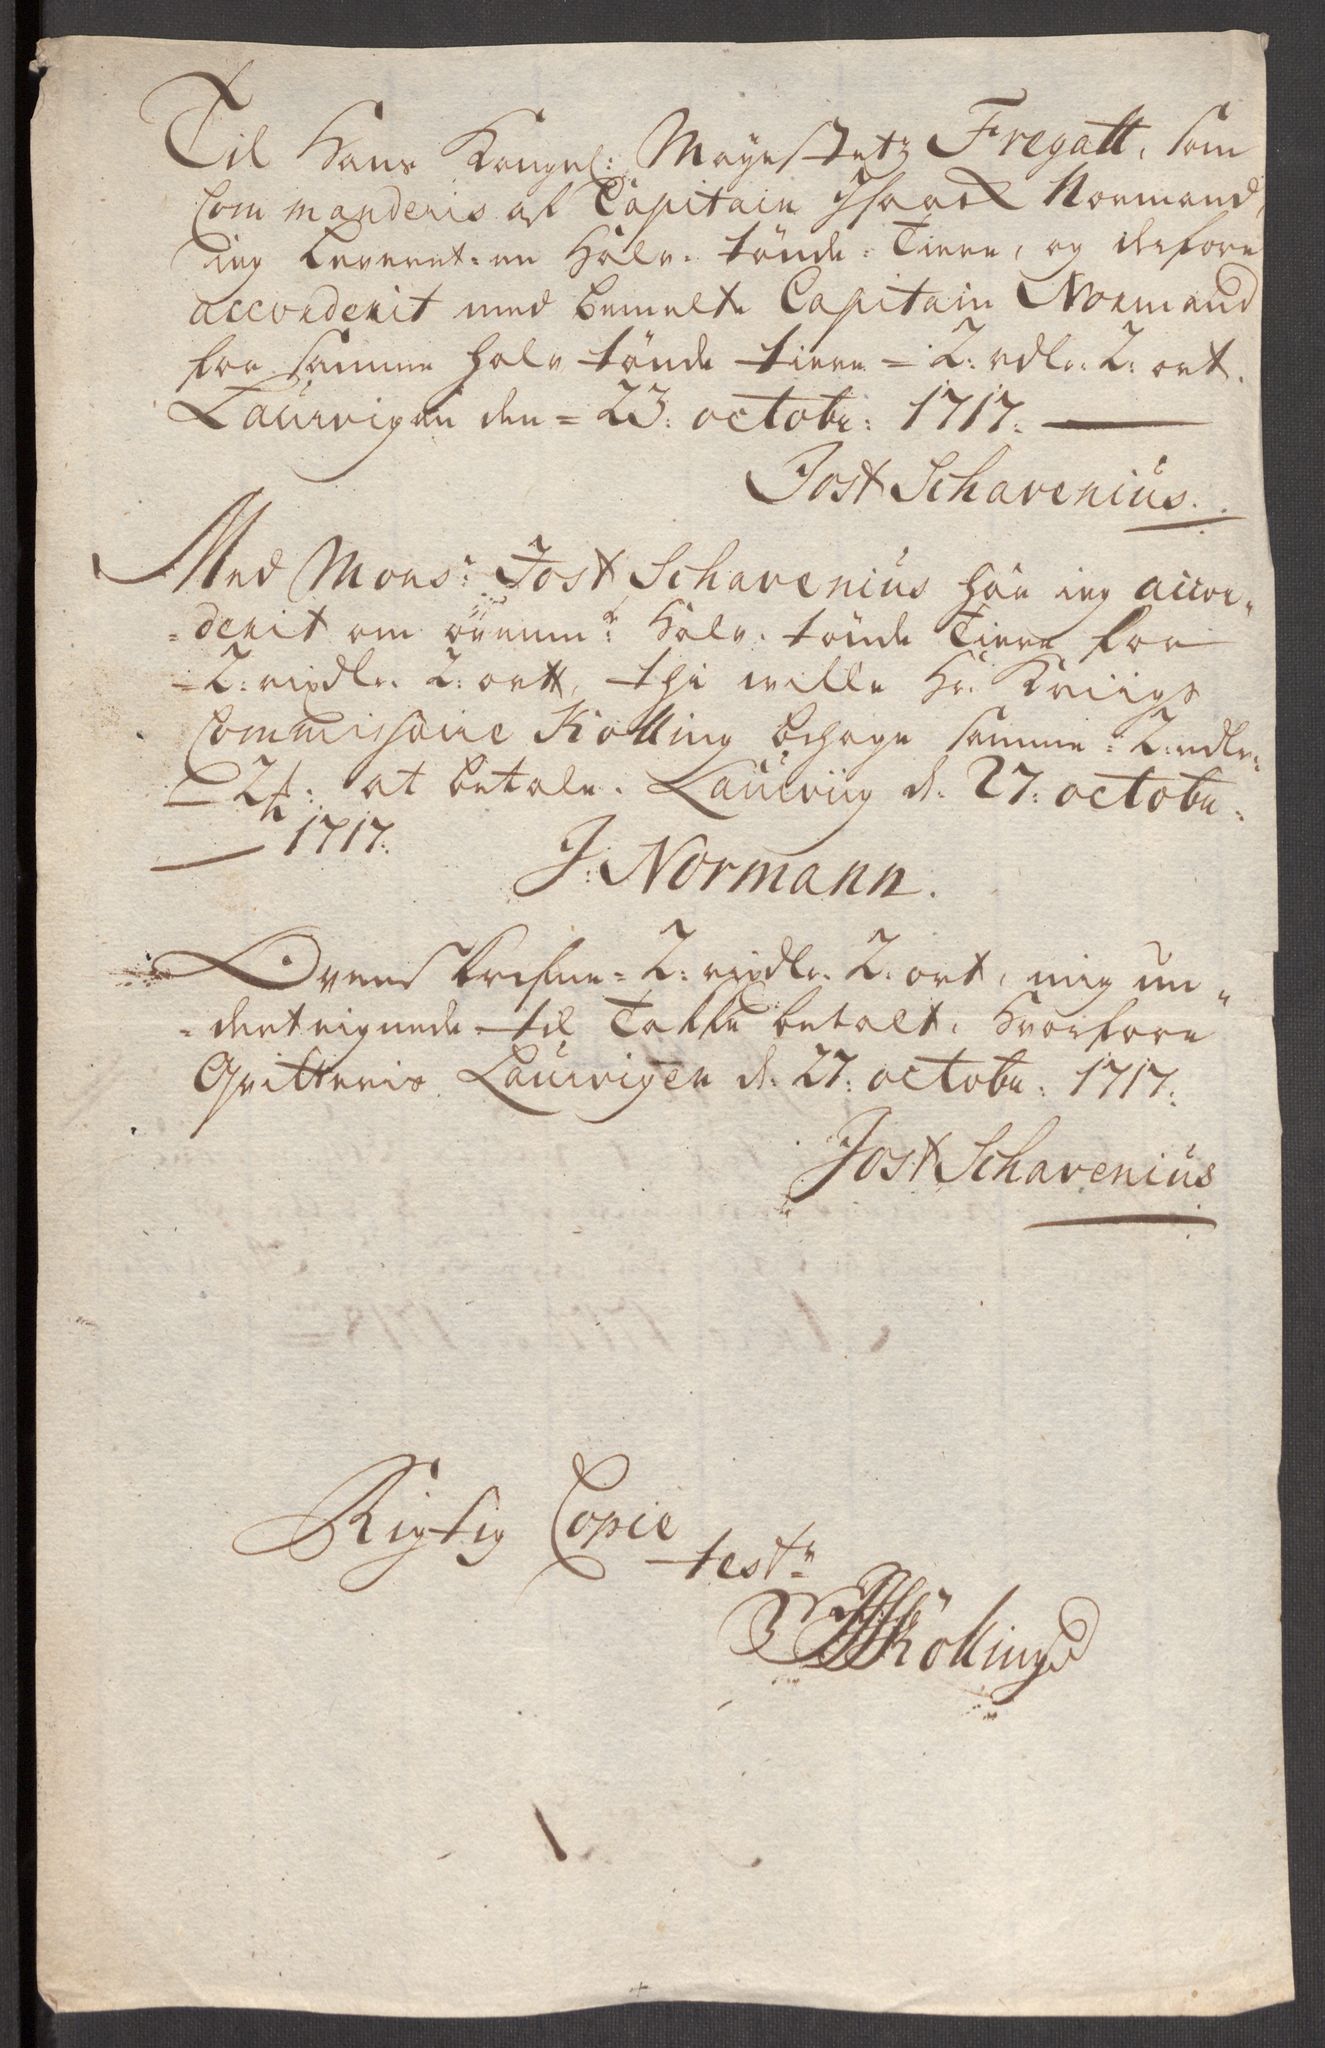 Til Hans Kongel: Mayestetz Fregatt, som
Commanderis af Capitain Isaach Normand,
ieg Leveret en Halv tönde Tiere, og derfore
accorderit med bemelte Capitain Normand
for samme halv tönde tiere = 2: rdlr: 2: ort.
Laurvigen den = 23: octobr: 1717:
Jost Schavenius.
Med Mons:r Jost Schavenius har ieg accor„
=derit om ovenm:te Halv tönde Tiere for
=2: rixdlr. 2: ortt, thi wille Hr. Kriigs
Commissarie Kolling behage samme = 2: rdlr:
= 2 ɱ: at betale. Laurviig d: 27: octobr:
1717:
J: Normann.
Ovenskrefne = 2: rixdlr. 2: ort, mig un„
=derteignede til Takke betalt, Hvorfore
Qvitteris Laurvigen d: 27: octobr: 1717:
Jost Schavenius
Rigtig Copie
test:
Kölling